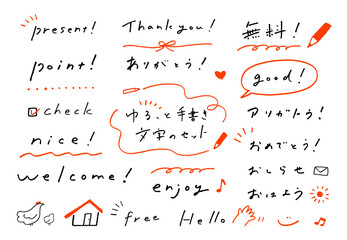 present!
Thank you!
無料!
point!
ありがとう!
good!
check
ゆるっと手書き
文字のセット
アリがたう!
nice!
おめでとう!
welcome!
enjoy
おしらせ
おはよう
free
Hello